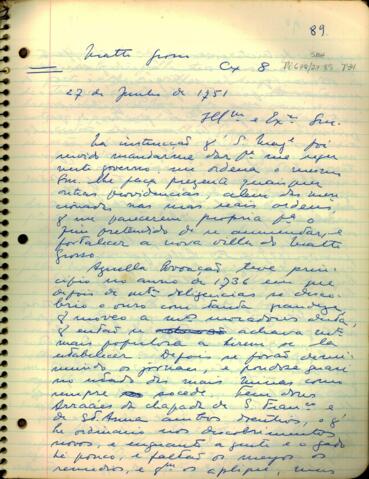 89.
Matto Grosso
Cx 8
27 de Junho de 1751
Illmo e Exmo Snr.
Na instrucção q' S. Magde foi
servido mandarme dar pa me
verte governo, me ordena o mesmo
Snr. lhe faça prezente quaesquer
outras providencias, alem das men
cionadas nas suas reais ordens,
q' me parecerem proprias pa o
fim pretendido de se augmentar, e
fortalecer a nova villa do Matto
Grosso.
Aquella Povoação teve prin
cipio no anno de 1736 em que
depois de mtas diligencias se desco
brio o ouro com tanta grandeza
q' moveo a mtos moradores desta,
q' então se achava mto
mais populosa a irem se la
estabelecer. Depois se forão demi
nuindo os jornais, e
das mais minas como
sempre sucede, bem
Arraeaes da chapada de S. Franco e
de Sta Anna ambos doentios, o q'
he ordinario nos descobrimentos
novos, e enquanto a gente e o gado
he pouco, e faltão os meyos os
remedios, e qm os aplique, mas